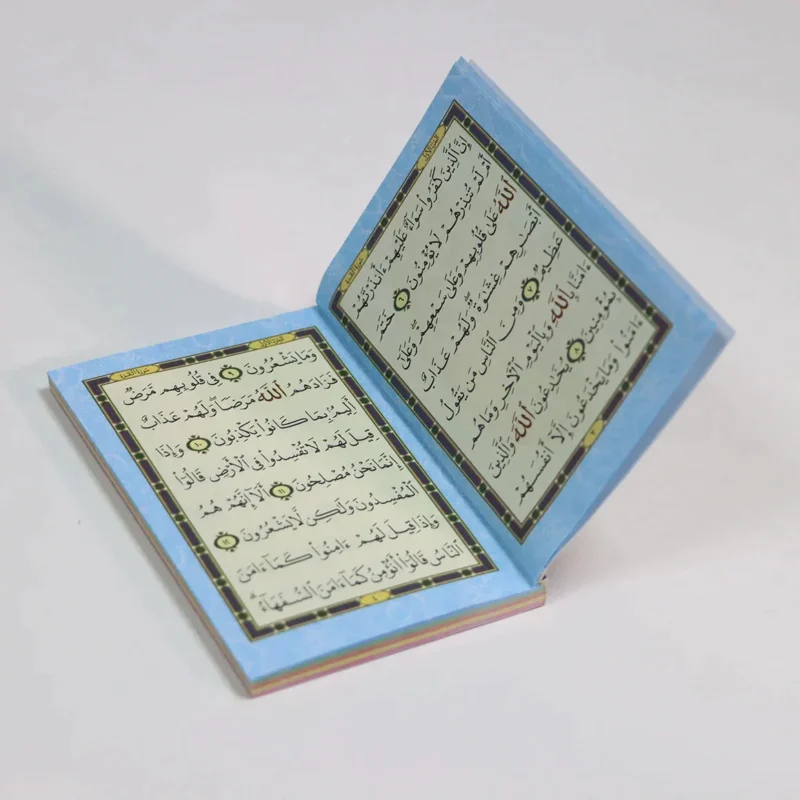 سورة البقرة
الجزء الأول
إِنَّ ٱلَّذِينَ كَفَرُوا۟ سَوَآءٌ عَلَيْهِمْ ءَأَنذَرْتَهُمْ
أَمْ لَمْ تُنذِرْهُمْ لَا يُؤْمِنُونَ ٦ خَتَمَ
ٱللَّهُ عَلَىٰ قُلُوبِهِمْ وَعَلَىٰ سَمْعِهِمْ ۖ وَعَلَىٰٓ
أَبْصَٰرِهِمْ غِشَٰوَةٌ ۖ وَلَهُمْ عَذَابٌ
عَظِيمٌ ٧ وَمِنَ ٱلنَّاسِ مَن يَقُولُ
ءَامَنَّا بِٱللَّهِ وَبِٱلْيَوْمِ ٱلْآخِرِ وَمَا هُم
بِمُؤْمِنِينَ ٨ يُخَٰدِعُونَ ٱللَّهَ وَٱلَّذِينَ
ءَامَنُوا۟ وَمَا يَخْدَعُونَ إِلَّآ أَنفُسَهُمْ
٣
الجزء الأول
سورة البقرة
وَمَا يَشْعُرُونَ ٩ فِى قُلُوبِهِم مَّرَضٌ
فَزَادَهُمُ ٱللَّهُ مَرَضًا ۖ وَلَهُمْ عَذَابٌ
أَلِيمٌۢ بِمَا كَانُوا۟ يَكْذِبُونَ ١٠ وَإِذَا
قِيلَ لَهُمْ لَا تُفْسِدُوا۟ فِى ٱلْأَرْضِ قَالُوٓا۟
إِنَّمَا نَحْنُ مُصْلِحُونَ ١١ أَلَآ إِنَّهُمْ هُمُ
ٱلْمُفْسِدُونَ وَلَٰكِن لَّا يَشْعُرُونَ ١٢
وَإِذَا قِيلَ لَهُمْ ءَامِنُوا۟ كَمَآ ءَامَنَ
ٱلنَّاسُ قَالُوٓا۟ أَنُؤْمِنُ كَمَآ ءَامَنَ ٱلسُّفَهَآءُ ۗ
٤